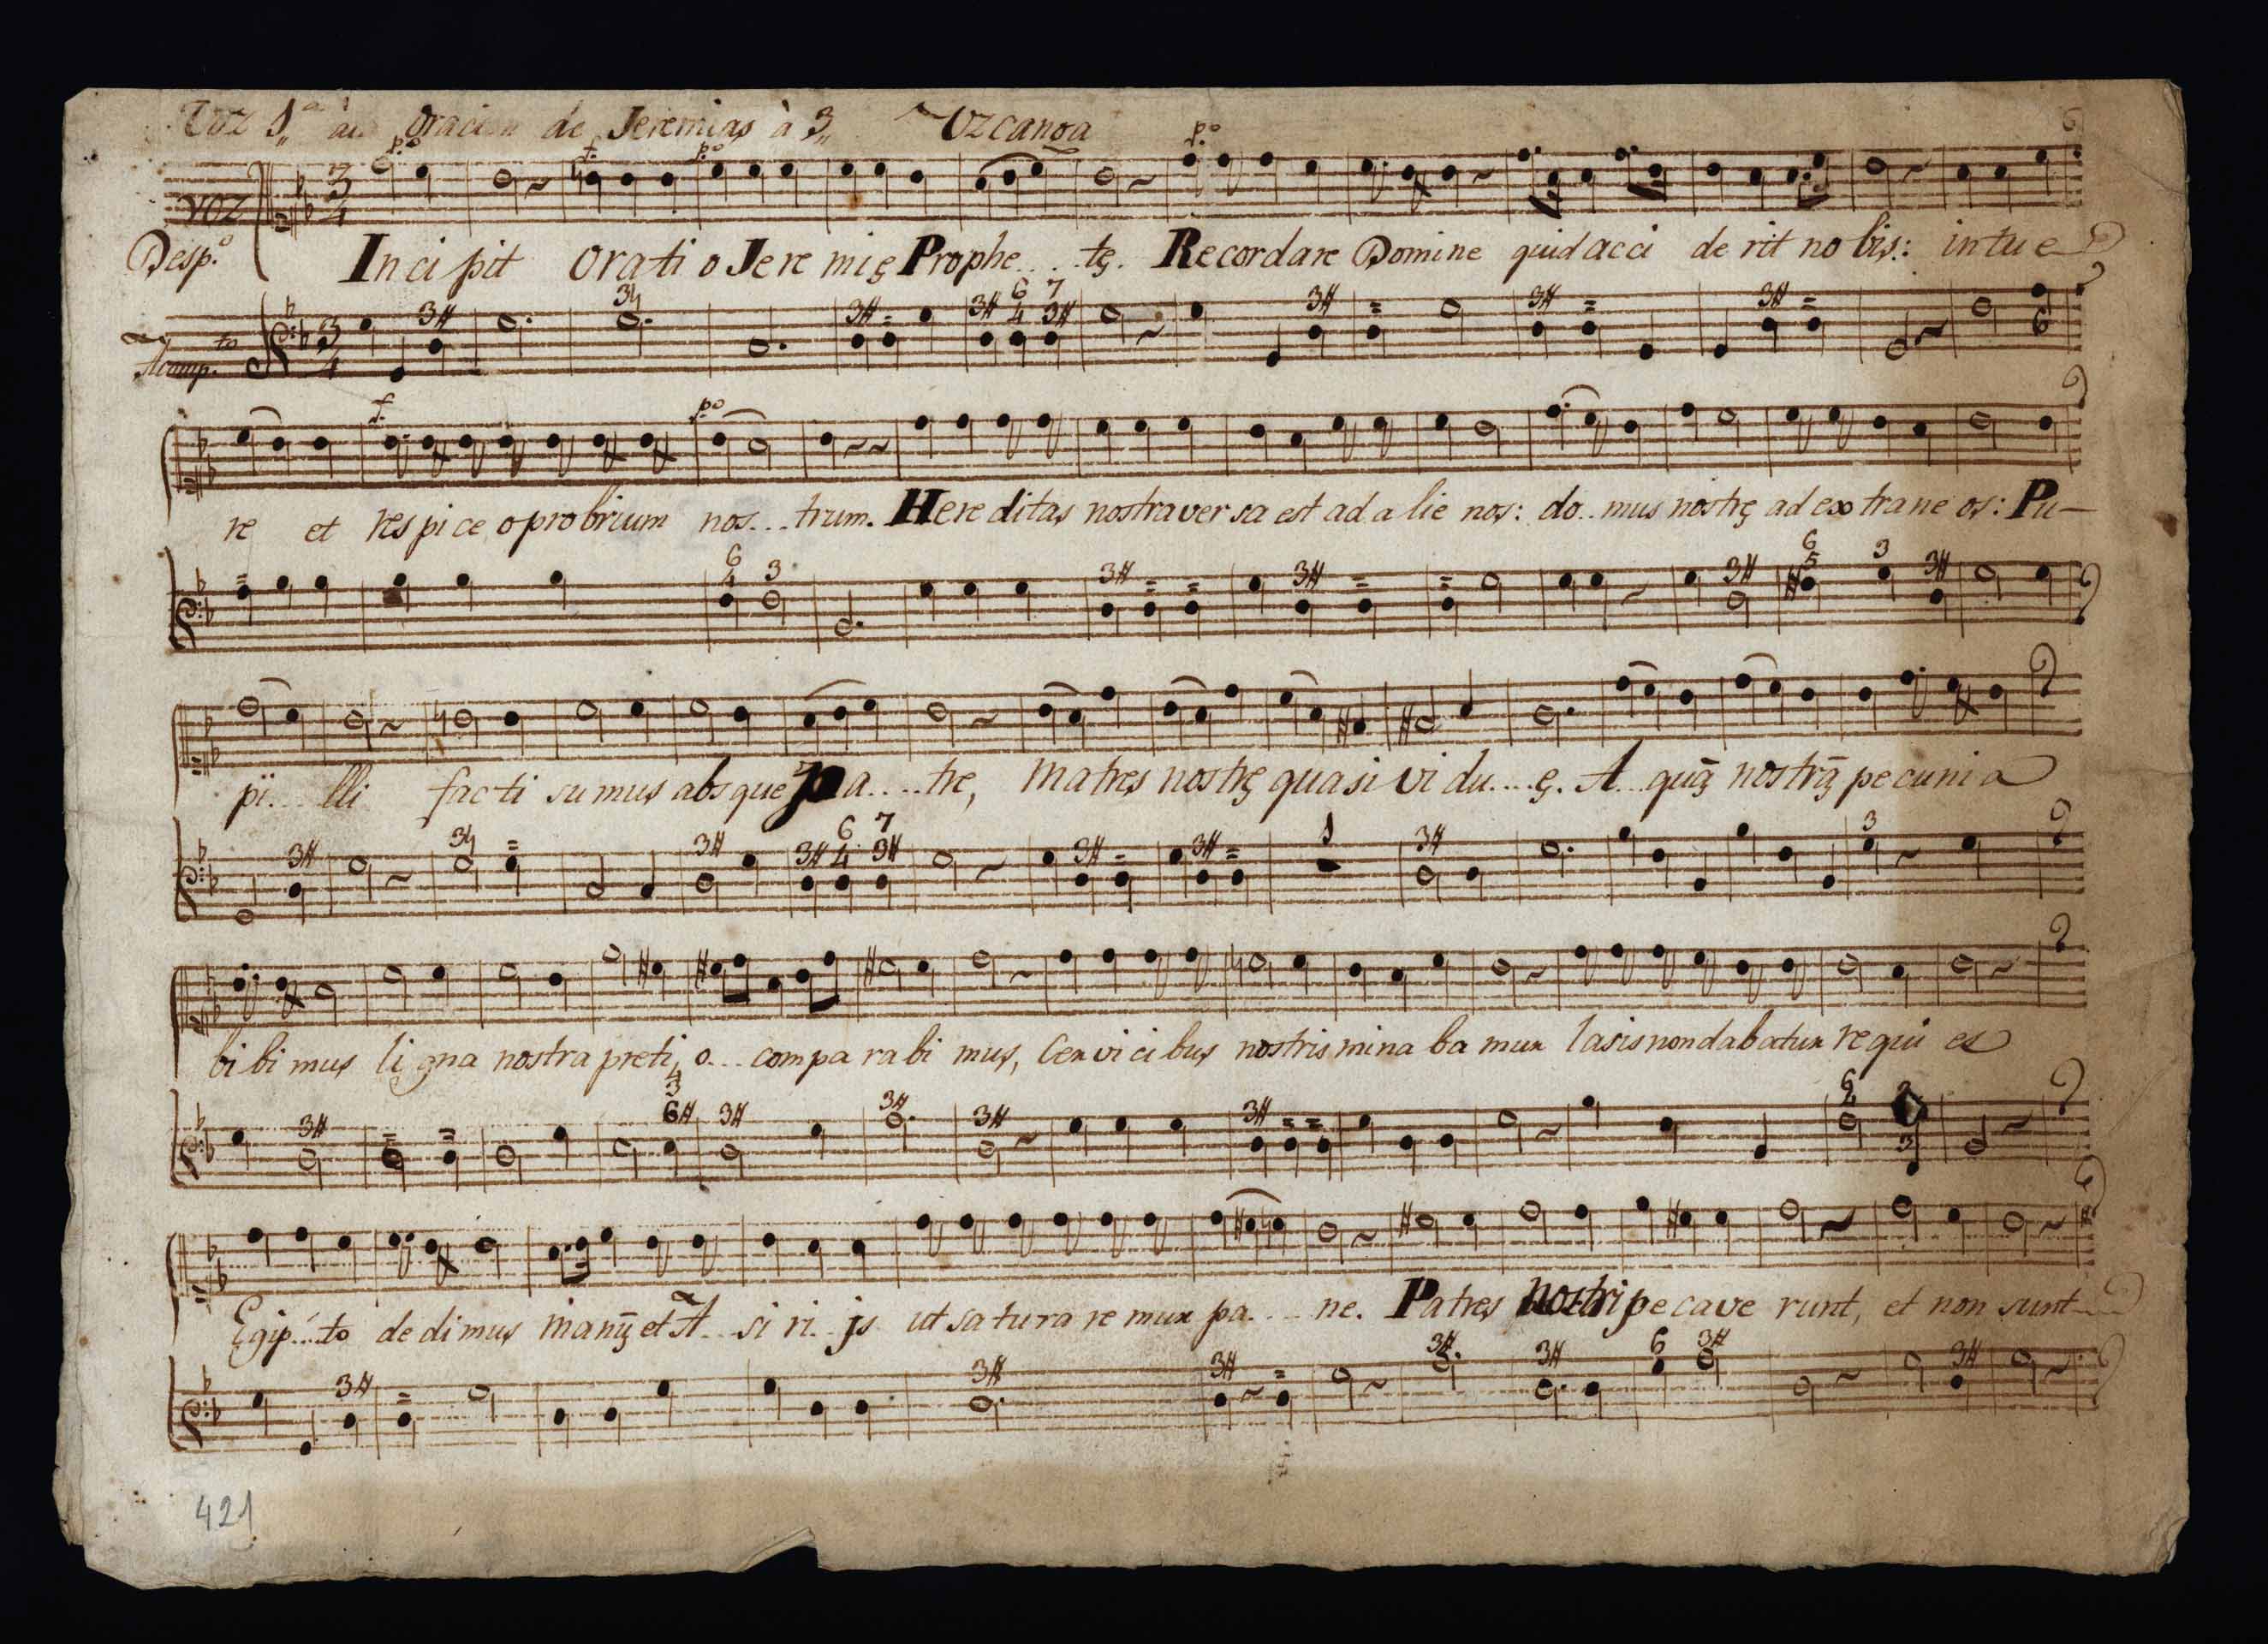 Voz 1ª à la Oracion de Jeremias à 3,, Uzcanga
p.º f. p.º p.º
VOZ 3 4
Desp.º In ci pit Orati o Je re mię Prophe....tę. Recordare Domine quid acci de rit no bis: in tu e
3# 3♮ 3# = 3# 6 4 7 3# 3# = 3# = 3# = 6
Acomp.to 3 4
f. p.º
re et res pi ce o pro brium nos...trum. Here ditas nostra ver sa est ad a lie nos: do..mus nostrę ad ex trane os: Pu-
= 6 4 3 3# = = 3# = = 3# 6 5 3 3#
pi...lli facti su mus abs que pa....tre, Matres nostrę quasi vi du....ę. A...quą̄ nostrą̄ pe cu ni a
3# 3♮ = 3# 3# 6 4 7 3# 3# = 3# = 1 3# 3
bi bi mus li gna nostra preti, o...com pa ra bi mus, Cer vi ci bus nostris mina ba mur lasis non dabatur re qui es
3# = = 4 3 6# 3# 3# 3# 3# = = 6 4 3
Egip...to de di mus manū et A...si ri..js ut sa tu ra re mur pa....ne. Patres nostri pe cave runt, et non sunt
3# = 3# 3# = 3# 3# 6 3# 3#
421